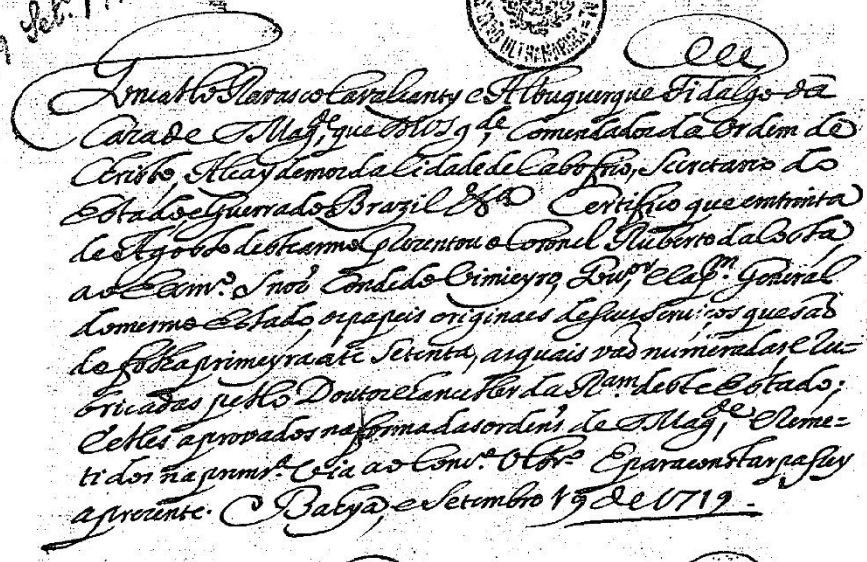 9 Set.
Gonçallo Ravasco Cavalcanty e Albuquerque Fidalgo da
Caza de S Magd.e, que Deos g.de, Comendador da Ordem de
Christo, Alcaydemor da Cidade de Cabo frio, Secretario do
Estado e Guerra do Brazil &ª Certifico que em trinta
de Agosto deste anno prezentou o Coronel Ruberto da Costa
ao Exm.º Snor Conde do Vimieyro, Gov.or e Cap.m General
do mesmo Estado, os papeis originaes de seus serviços que são
de folha primeyra ate Setenta, as quais vão numeradas e Ru=
bricadas pello Doutor Chanceller da Ram. deste Estado;
e elles aprovados na forma das ordens de S Magd.e, e Reme=
tidos na prim.ra via ao Cons.º Ultr.º E para constar passey
a prezente. Bahya, e Setembro 19 de 1719.